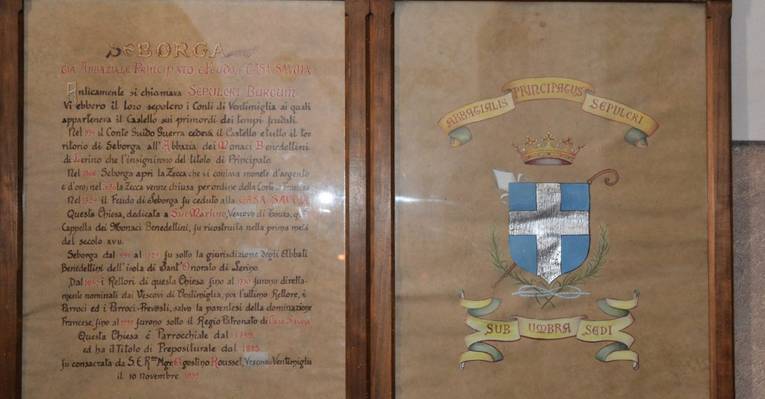 SEBORGA
GIÀ ABBAZIALE PRINCIPATO e feudo di CASA SAVOIA
Anticamente si chiamava SEPULCRI BURGUM
Vi ebbero il loro sepolcro i Conti di Ventimiglia ai quali
apparteneva il Castello sui primordi dei tempi feudali.
Nel il Conte Guido Guerra cedeva il Castello e tutto il ter
ritorio di Seborga all'Abbazia dei Monaci Benedettini
di Lerino che l'insignirono del titolo di Principato.
Nel Seborga aprì la Zecca che si coniava monete d'argento
e d'oro; nel la Zecca venne chiusa per ordine della Corte di
Nel il Feudo di Seborga fu ceduto alla CASA SAVOIA
Questa Chiesa, dedicata a San Martino, Vescovo di Tours, già
Cappella dei Monaci Benedettini, fu ricostruita nella prima metà
del secolo XVII.
Seborga dal al fu sotto la giurisdizione degli Abbati
Benedettini dell'isola di Sant'Onorato di Lerino.
Dal i Rettori di questa Chiesa fino al furono diretta-
mente nominati dai Vescovi di Ventimiglia, poi l'ultimo Rettore, i
Parroci ed i Parroci-Prevosti, salvo la parentesi della dominazione
Francese, fino al furono sotto il Regio Patronato di Casa Savoia
Questa Chiesa è Parrocchiale dal
ed ha il Titolo di Prepositurale dal
fu consacrata da S. E. R.ma Mgr Agostino Rousset, Vescovo Ventimiglia
il 10 Novembre
ABBATIALIS PRINCIPATUS SEPULCRI
SUB UMBRA SEDI